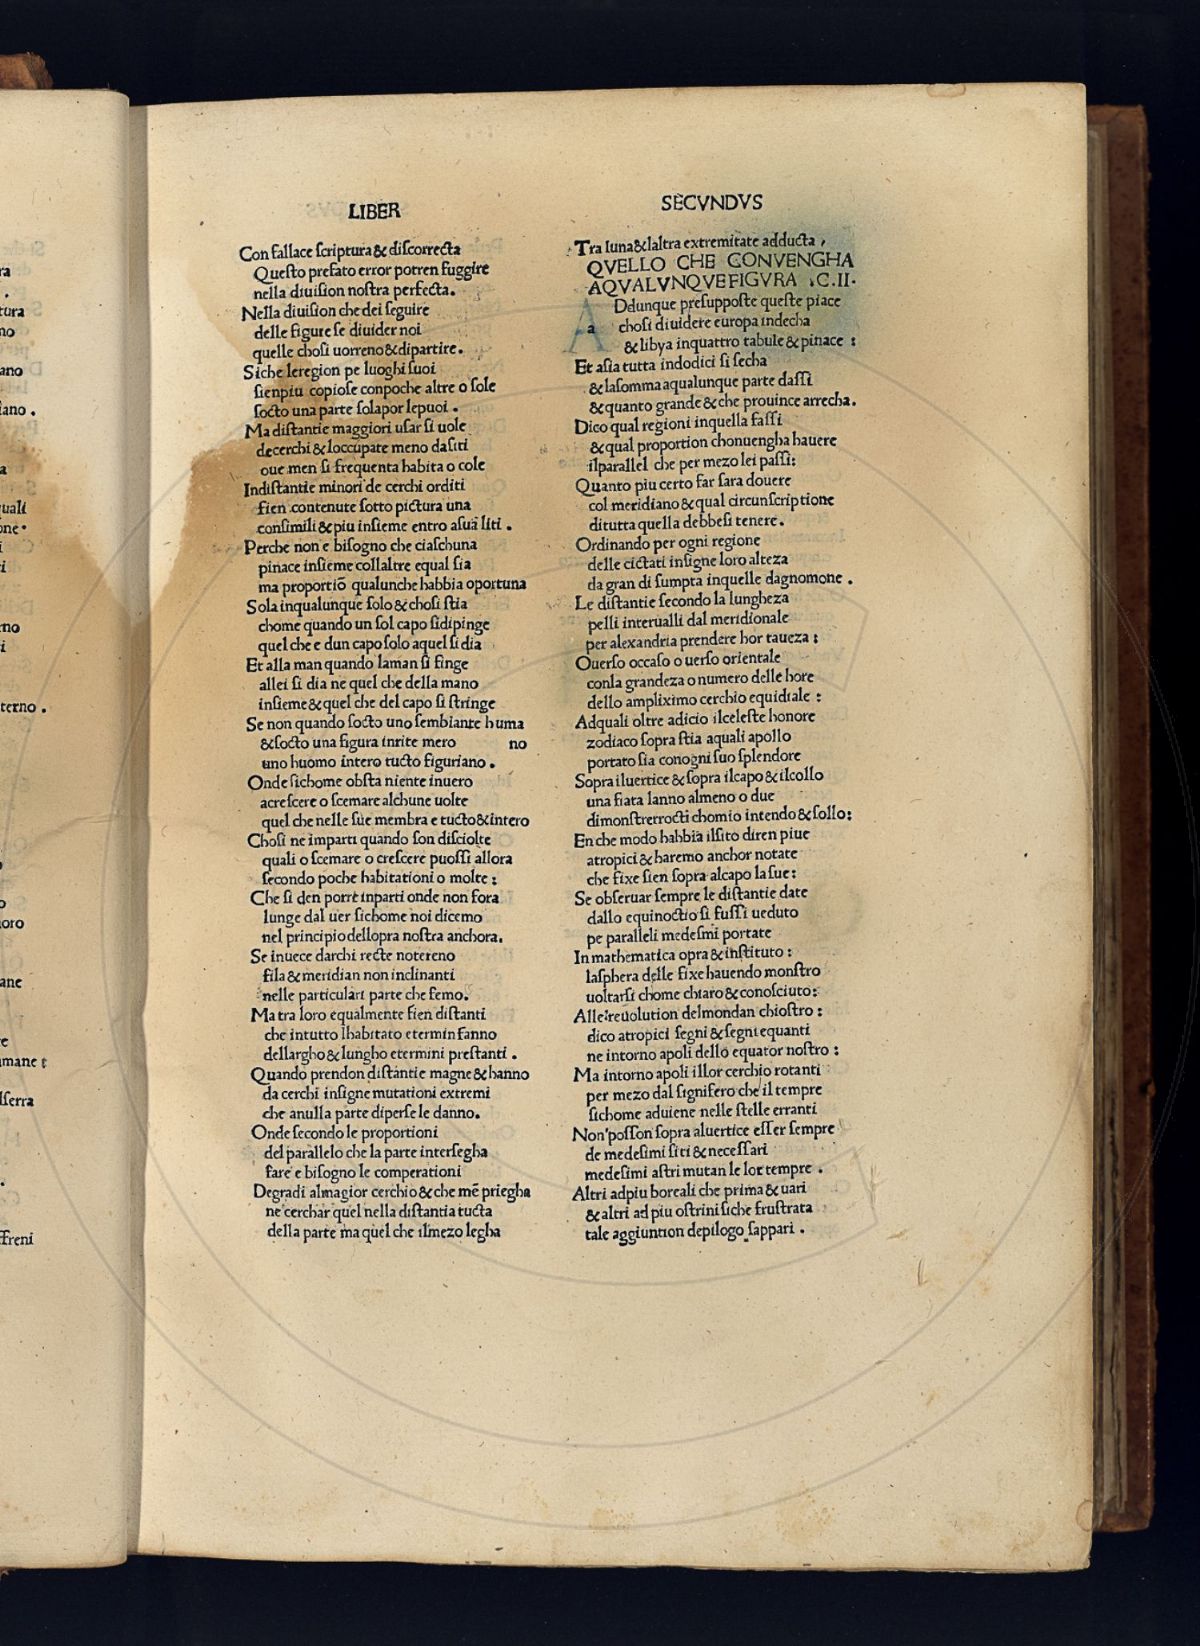 LIBER
Con fallace ſcriptura & diſcorrecta
Queſto prefato error potren fuggire
nella diuiſion noſtra perfecta.
Nella diuiſion che dei ſeguire
delle figure ſe diuider noi
quelle choſi uorreno & dipartire.
Siche leregion pe luoghi ſuoi
ſienpiu copioſe conpoche altre o ſole
ſocto una parte ſolapor lepuoi.
Ma diſtantie maggiori uſar ſi uole
decerchi & loccupate meno daſiti
oue men ſi frequenta habita o cole
Indiſtantie minori de cerchi orditi
fien contenute ſotto pictura una
conſimili & piu inſieme entro aſuā liti.
Perche non e biſogno che ciaſchuna
pinace inſieme collaltre equal ſia
ma proportiō qualunche habbia oportuna
Sola inqualunque ſolo & choſi ſtia
chome quando un ſol capo ſidipinge
quel che e dun capo ſolo aquel ſi dia
Et alla man quando laman ſi finge
allei ſi dia ne quel che della mano
inſieme & quel che del capo ſi ſtringe
Se non quando ſocto uno ſembiante huma
& ſocto una figura inrite mero no
uno huomo intero tucto figuriano.
Onde ſichome obſta niente inuero
acreſcere o ſcemare alchune uolte
quel che nelle ſue membra e tucto & intero
Choſi ne imparti quando ſon diſciolte
quali o ſcemare o creſcere puoſſi allora
ſecondo poche habitationi o molte:
Che ſi den porre inparti onde non fora
lunge dal uer ſichome noi dicemo
nel principio dellopra noſtra anchora.
Se inuece darchi recte notereno
fila & meridian non inclinanti
nelle particulari parte che femo.
Ma tra loro equalmente fien diſtanti
che intutto lhabitato etermin fanno
dellargho & lungho etermini preſtanti.
Quando prendon diſtantie magne & hanno
da cerchi inſigne mutationi extremi
che anulla parte diperſe le danno.
Onde ſecondo le proportioni
del parallelo che la parte interſegha
fare e biſogno le comperationi
Degradi almagior cerchio & che mē priegha
ne cerchar quel nella diſtantia tucta
della parte ma quel che ilmezo legha
SECVNDVS
Tra luna & laltra extremitate adducta,
QVELLO CHE CONVENGHA
AQVALVNQVE FIGVRA .C.II.
A Ddunque preſuppoſte queſte piace
a choſi diuidere europa indecha
& libya inquattro tabule & pinace:
Et aſia tutta indodici ſi ſecha
& laſomma aqualunque parte daſſi
& quanto grande & che prouince arrecha.
Dico qual regioni inquella faſſi
& qual proportion chonuengha hauere
ilparallel che per mezo lei paſſi:
Quanto piu certo far ſara douere
col meridiano & qual circunſcriptione
ditutta quella debbeſi tenere.
Ordinando per ogni regione
delle cictati inſigne loro alteza
da gran di ſumpta inquelle dagnomone.
Le diſtantie ſecondo la lungheza
pelli interualli dal meridionale
per alexandria prendere hor taueza:
Ouerſo occaſo o uerſo orientale
conla grandeza o numero delle hore
dello ampliximo cerchio equidiale:
Adquali oltre adicio ilceleſte honore
zodiaco ſopra ſtia aquali apollo
portato ſia conogni ſuo ſplendore
Sopra iluertice & ſopra ilcapo & ilcollo
una fiata lanno almeno o due
dimonſtrerrocti chomio intendo & ſollo:
En che modo habbia ilſito diren piue
atropici & haremo anchor notate
che fixe ſien ſopra alcapo la ſue:
Se obſeruar ſempre le diſtantie date
dallo equinoctio ſi fuſſi ueduto
pe paralleli medeſmi portate
In mathematica opra & inſtituto:
laſphera delle fixe hauendo monſtro
uoltarſi chome chiaro & conoſciuto:
Alle reuolution delmondan chioſtro:
dico atropici ſegni & ſegni equanti
ne intorno apoli dello equator noſtro:
Ma intorno apoli illor cerchio rotanti
per mezo dal ſignifero che il tempre
ſichome aduiene nelle ſtelle erranti
Non poſſon ſopra aluertice eſſer ſempre
de medeſimi ſiti & neceſſari
medeſimi aſtri mutan le lor tempre.
Altri adpiu boreali che prima & uari
& altri ad piu oſtrini ſiche fruſtrata
tale aggiuntion depilogo ſappari.